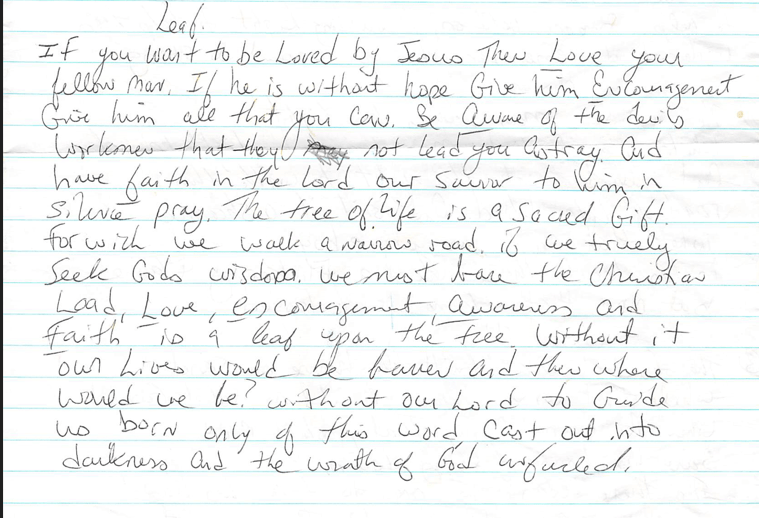 Leaf.
If you want to be Loved by Jesus Then Love your
fellow man. If he is without hope Give him Encouragement
Give him all that you can. Be Aware of the devils
workmen that they may not lead you Astray. And
have faith in the Lord our Savior to him in
silence pray. The tree of life is a Sacred Gift.
for wich we walk a narrow road. if we truely
Seek Gods wisdom. we must bare the Christian
Load, Love, encouragement, awareness and
Faith is a leaf upon the tree. Without it
our Lives would be barren and then where
would we be? without our Lord to Guide
us born only of this word Cast out into
darkness and the wrath of God unfurled.